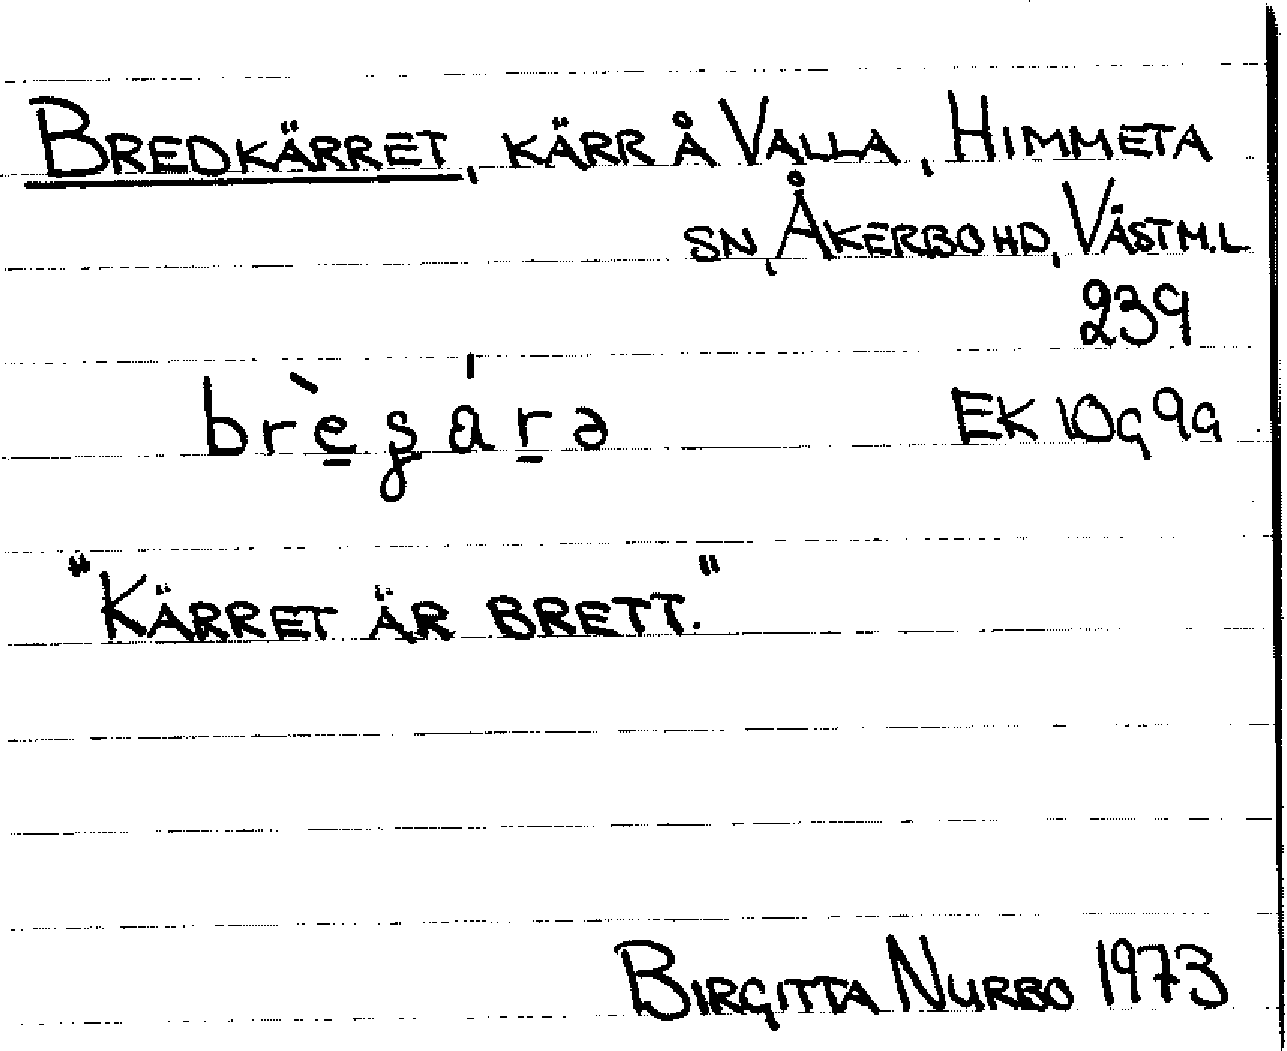 BREDKÄRRET, KÄRR Å VALLA, HIMMETA
SN, ÅKERBO HD, VÄSTM. L
239
EK 10G 9G
"KÄRRET ÄR BRETT."
BIRGITTA NURBO 1973